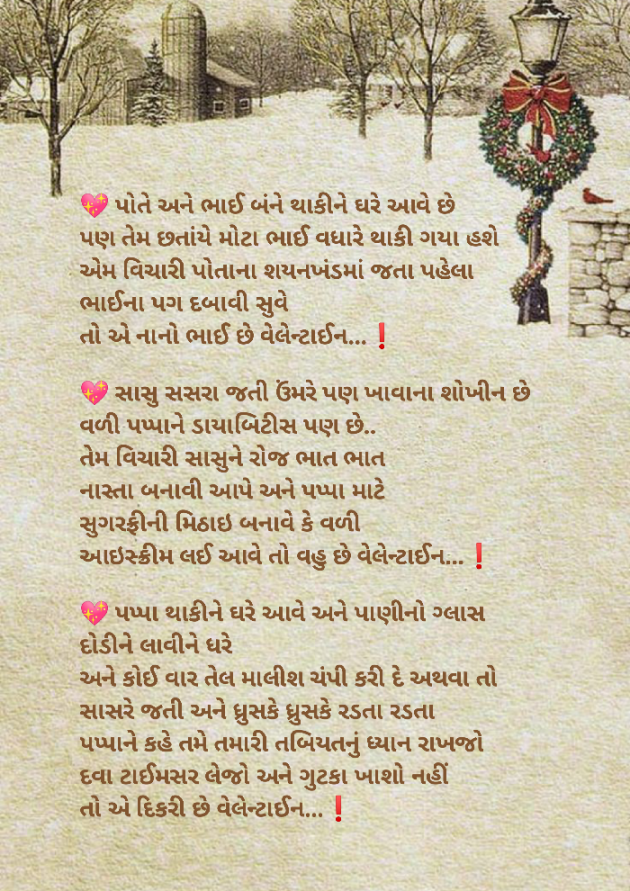 💖 પોતે અને ભાઈ બંને થાકીને ઘરે આવે છે
પણ તેમ છતાંયે મોટા ભાઈ વધારે થાકી ગયા હશે
એમ વિચારી પોતાના શયનખંડમાં જતા પહેલા
ભાઈના પગ દબાવી સુવે
તો એ નાનો ભાઈ છે વેલેન્ટાઈન...❗
💖 સાસુ સસરા જતી ઉંમરે પણ ખાવાના શોખીન છે
વળી પપ્પાને ડાયાબિટીસ પણ છે..
તેમ વિચારી સાસુને રોજ ભાત ભાત
નાસ્તા બનાવી આપે અને પપ્પા માટે
સુગરફ્રીની મિઠાઇ બનાવે કે વળી
આઇસ્ક્રીમ લઈ આવે તો વહુ છે વેલેન્ટાઈન...❗
💖 પપ્પા થાકીને ઘરે આવે અને પાણીનો ગ્લાસ
દોડીને લાવીને ધરે
અને કોઈ વાર તેલ માલીશ ચંપી કરી દે અથવા તો
સાસરે જતી અને ધ્રુસકે ધ્રુસકે રડતા રડતા
પપ્પાને કહે તમે તમારી તબિયતનું ધ્યાન રાખજો
દવા ટાઈમસર લેજો અને ગુટકા ખાશો નહીં
તો એ દિકરી છે વેલેન્ટાઈન...❗